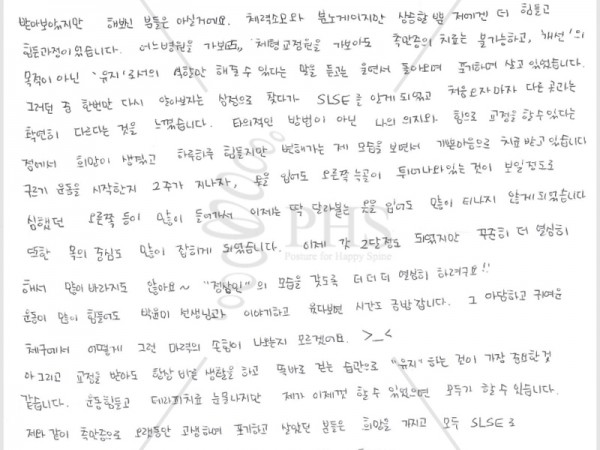 받아보았지만 해보신 분들은 아실거에요. 체력소모와 분노게이지만 상승할뿐 저에겐 더 힘들고
힘든과정이었습니다. 어느병원을 가보아도, 체형교정원을 가보아도 측만증의 치료는 불가능하고, '개선'의
목적이 아닌 '유지'로서의 역할만 해줄 수 있다는 말을 듣고는 울면서 돌아오며 포기하며 살고 있었습니다.
그러던 중 한번만 다시 알아보자는 심정으로 찾다가 SLSE를 알게 되었고 처음오자마자 다른 곳과는
확연히 다르다는 것을 느꼈습니다. 타의적인 방법이 아닌 나의 의지와 힘으로 교정을 할 수 있다는
점에서 희망이 생겼고 하루하루 힘들지만 변해가는 제 모습을 보면서 기쁜마음으로 치료 받고 있습니다
구르기 운동을 시작한지 2주가 지나자, 옷을 입어도 오른쪽 늑골이 튀어나와있는 것이 보일정도로
심했던 오른쪽 등이 많이 들어가서 이제는 딱 달라붙는 옷을 입어도 많이 티나지 않게 되었습니다
또한 몸의 중심도 많이 잡히게 되었습니다. 이제 각 2달정도 되었지만 꾸준히 더 열심히
해서 많이 바라지도 않아요~ "정상인"의 모습을 갖도록 더 더 더 열심히 하려구요!!
운동이 많이 힘들어도 박윤미 선생님과 이야기하고 웃다보면 시간도 금방갑니다. 그 아담하고 귀여운
체구에서 어떻게 그런 마력의 손힘이 나오는지 모르겠어요. >_<
아 그리고 교정을 받아도 항상 바른 생활을 하고 똑바로 걷는 습관으로 "유지"하는 것이 가장 중요한것
같습니다. 운동힘들고 테라피치료 눈물나지만 제가 이제껏 할 수 있었으면 모두가 할 수 있습니다.
저와 같이 측만증으로 오랫동안 고생하며 포기하고 살았던 분들은 희망을 가지고 모두 SLSE로
PHS
Posture for Happy Spine